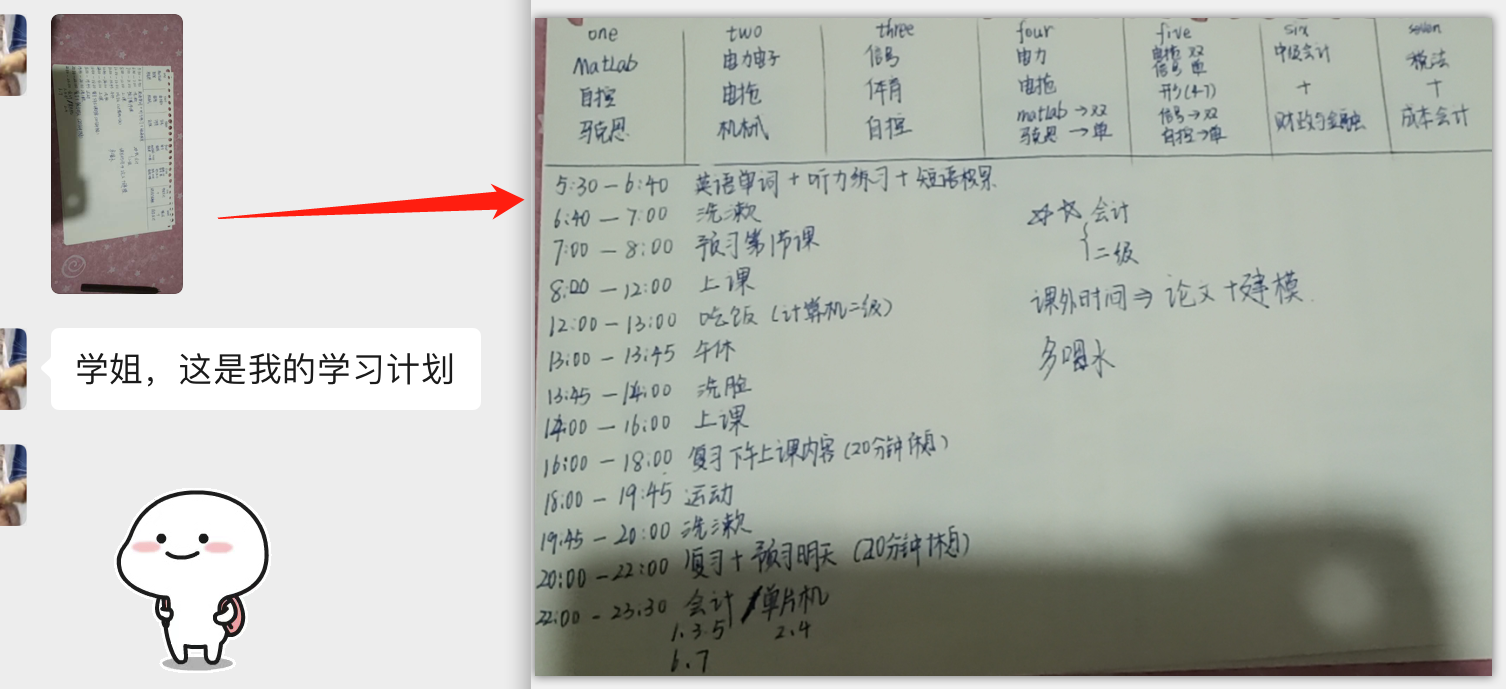 学姐，这是我的学习计划
one two three four five six seven
MatLab 电力电子 信号 电力 电拖 双 中级会计 税法
信号 单
自控 电拖 体育 电拖 形(4-7) + +
马克思 机械 自控 matlab → 双 信号 → 双 财政与金融 成本会计
马克思 → 单 自控 → 单
5:30 — 6:40 英语单词 + 听力练习 + 短语积累
6:40 — 7:00 洗漱
7:00 — 8:00 预习第1节课
8:00 — 12:00 上课
12:00 — 13:00 吃饭 (计算机二级)
13:00 — 13:45 午休
13:45 — 14:00 洗脸
14:00 — 16:00 上课
16:00 — 18:00 复习下午上课内容 (20分钟休息)
18:00 — 19:45 运动
19:45 — 20:00 洗漱
20:00 — 22:00 复习 + 预习明天 (20分钟休息)
22:00 — 23:30 会计 / 单片机
1.3.5 2.4
6.7
☆☆ 会计
二级
课外时间 ⇒ 论文 + 建模.
多喝水